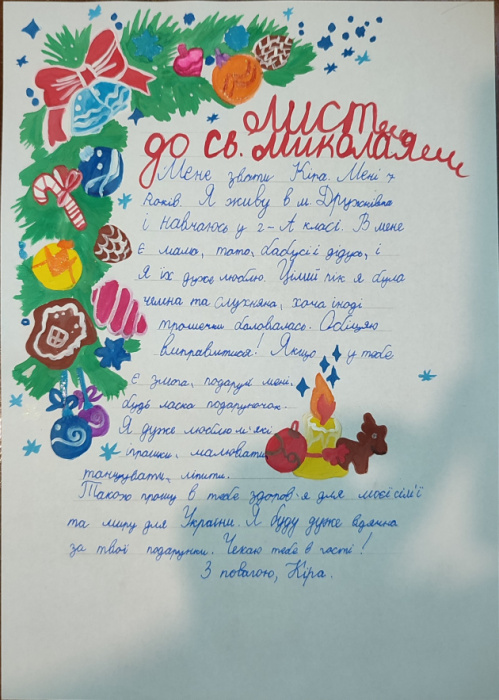 Лист
до св. Миколая
Мене звати Кіра. Мені 7
років. Я живу в м Дружківка
і навчаюсь у 2-А класі. В мене
є мама, тато, бабусі і дідусь, і
я їх дуже люблю. Цілий рік я була
чемна та слухняна, хоча іноді
трошечки баловалась. Обіцяю
виправитися! Якщо у тебе
є змога, подаруй мені,
будь ласка подаруночок.
Я дуже люблю м'які
іграшки, малювати
танцювати, ліпити.
Також прошу в тебе здоров'я для моєї сім'ї
та миру для України. Я буду дуже вдячна
за твої подарунки. Чекаю тебе в гості!
З повагою, Кіра.